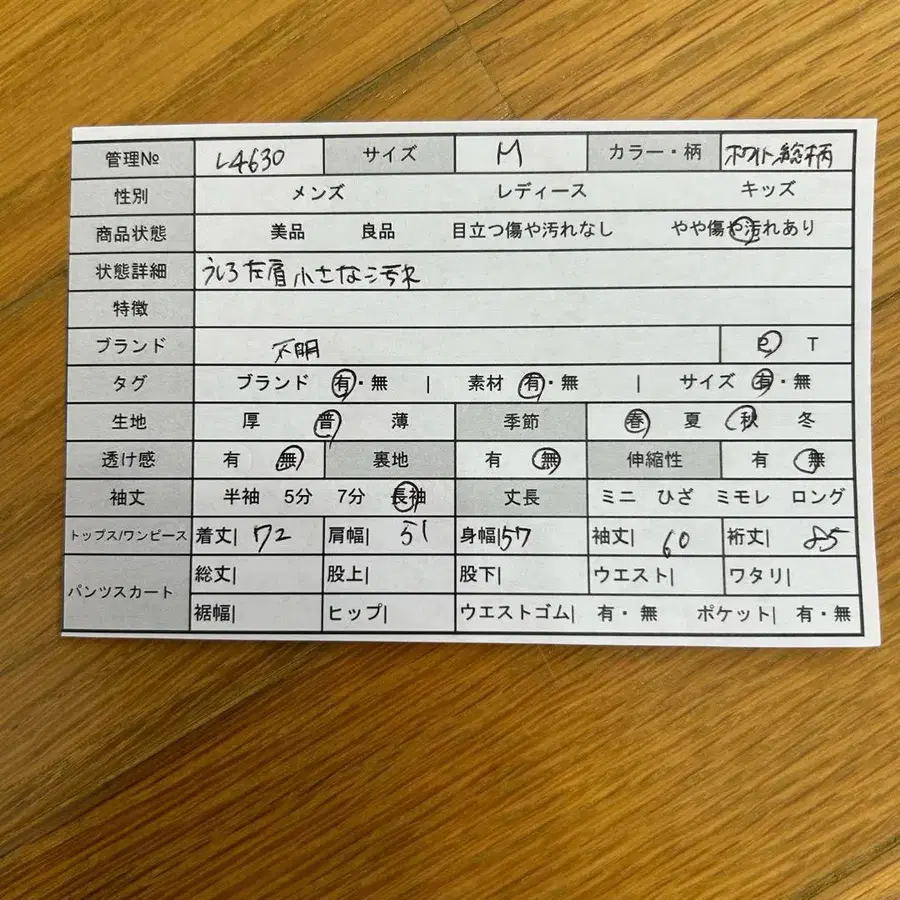 管理№ L4630 サイズ M カラー・柄 ホワイト総柄
性別 メンズ レディース キッズ
商品状態 美品 良品 目立つ傷や汚れなし やや傷や汚れあり
状態詳細 うしろ左肩小さな汚れ
特徴
ブランド 不明 P T
タグ ブランド 有・無 | 素材 有・無 | サイズ 有・無
生地 厚 普 薄 季節 春 夏 秋 冬
透け感 有 無 裏地 有 無 伸縮性 有 無
袖丈 半袖 5分 7分 長袖 丈長 ミニ ひざ ミモレ ロング
トップス/ワンピース 着丈| 72 肩幅| 51 身幅|57 袖丈| 60 裄丈| 85
パンツスカート 総丈| 股上| 股下| ウエスト| ワタリ|
裾幅| ヒップ| ウエストゴム| 有・無 ポケット| 有・無